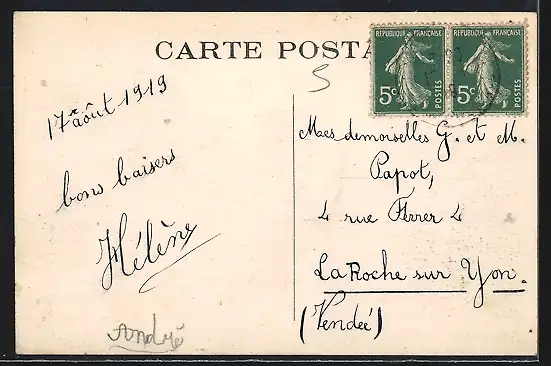 CARTE POSTA
REPUBLIQUE FRANÇAISE
5c
POSTES
REPUBLIQUE FRANÇAISE
5c
POSTES
5
17 août 1919
bons baisers
Hélène
André
Mes demoiselles G. et M.
Papot,
4 rue Ferrer 4
La Roche sur Yon.
(Vendée)